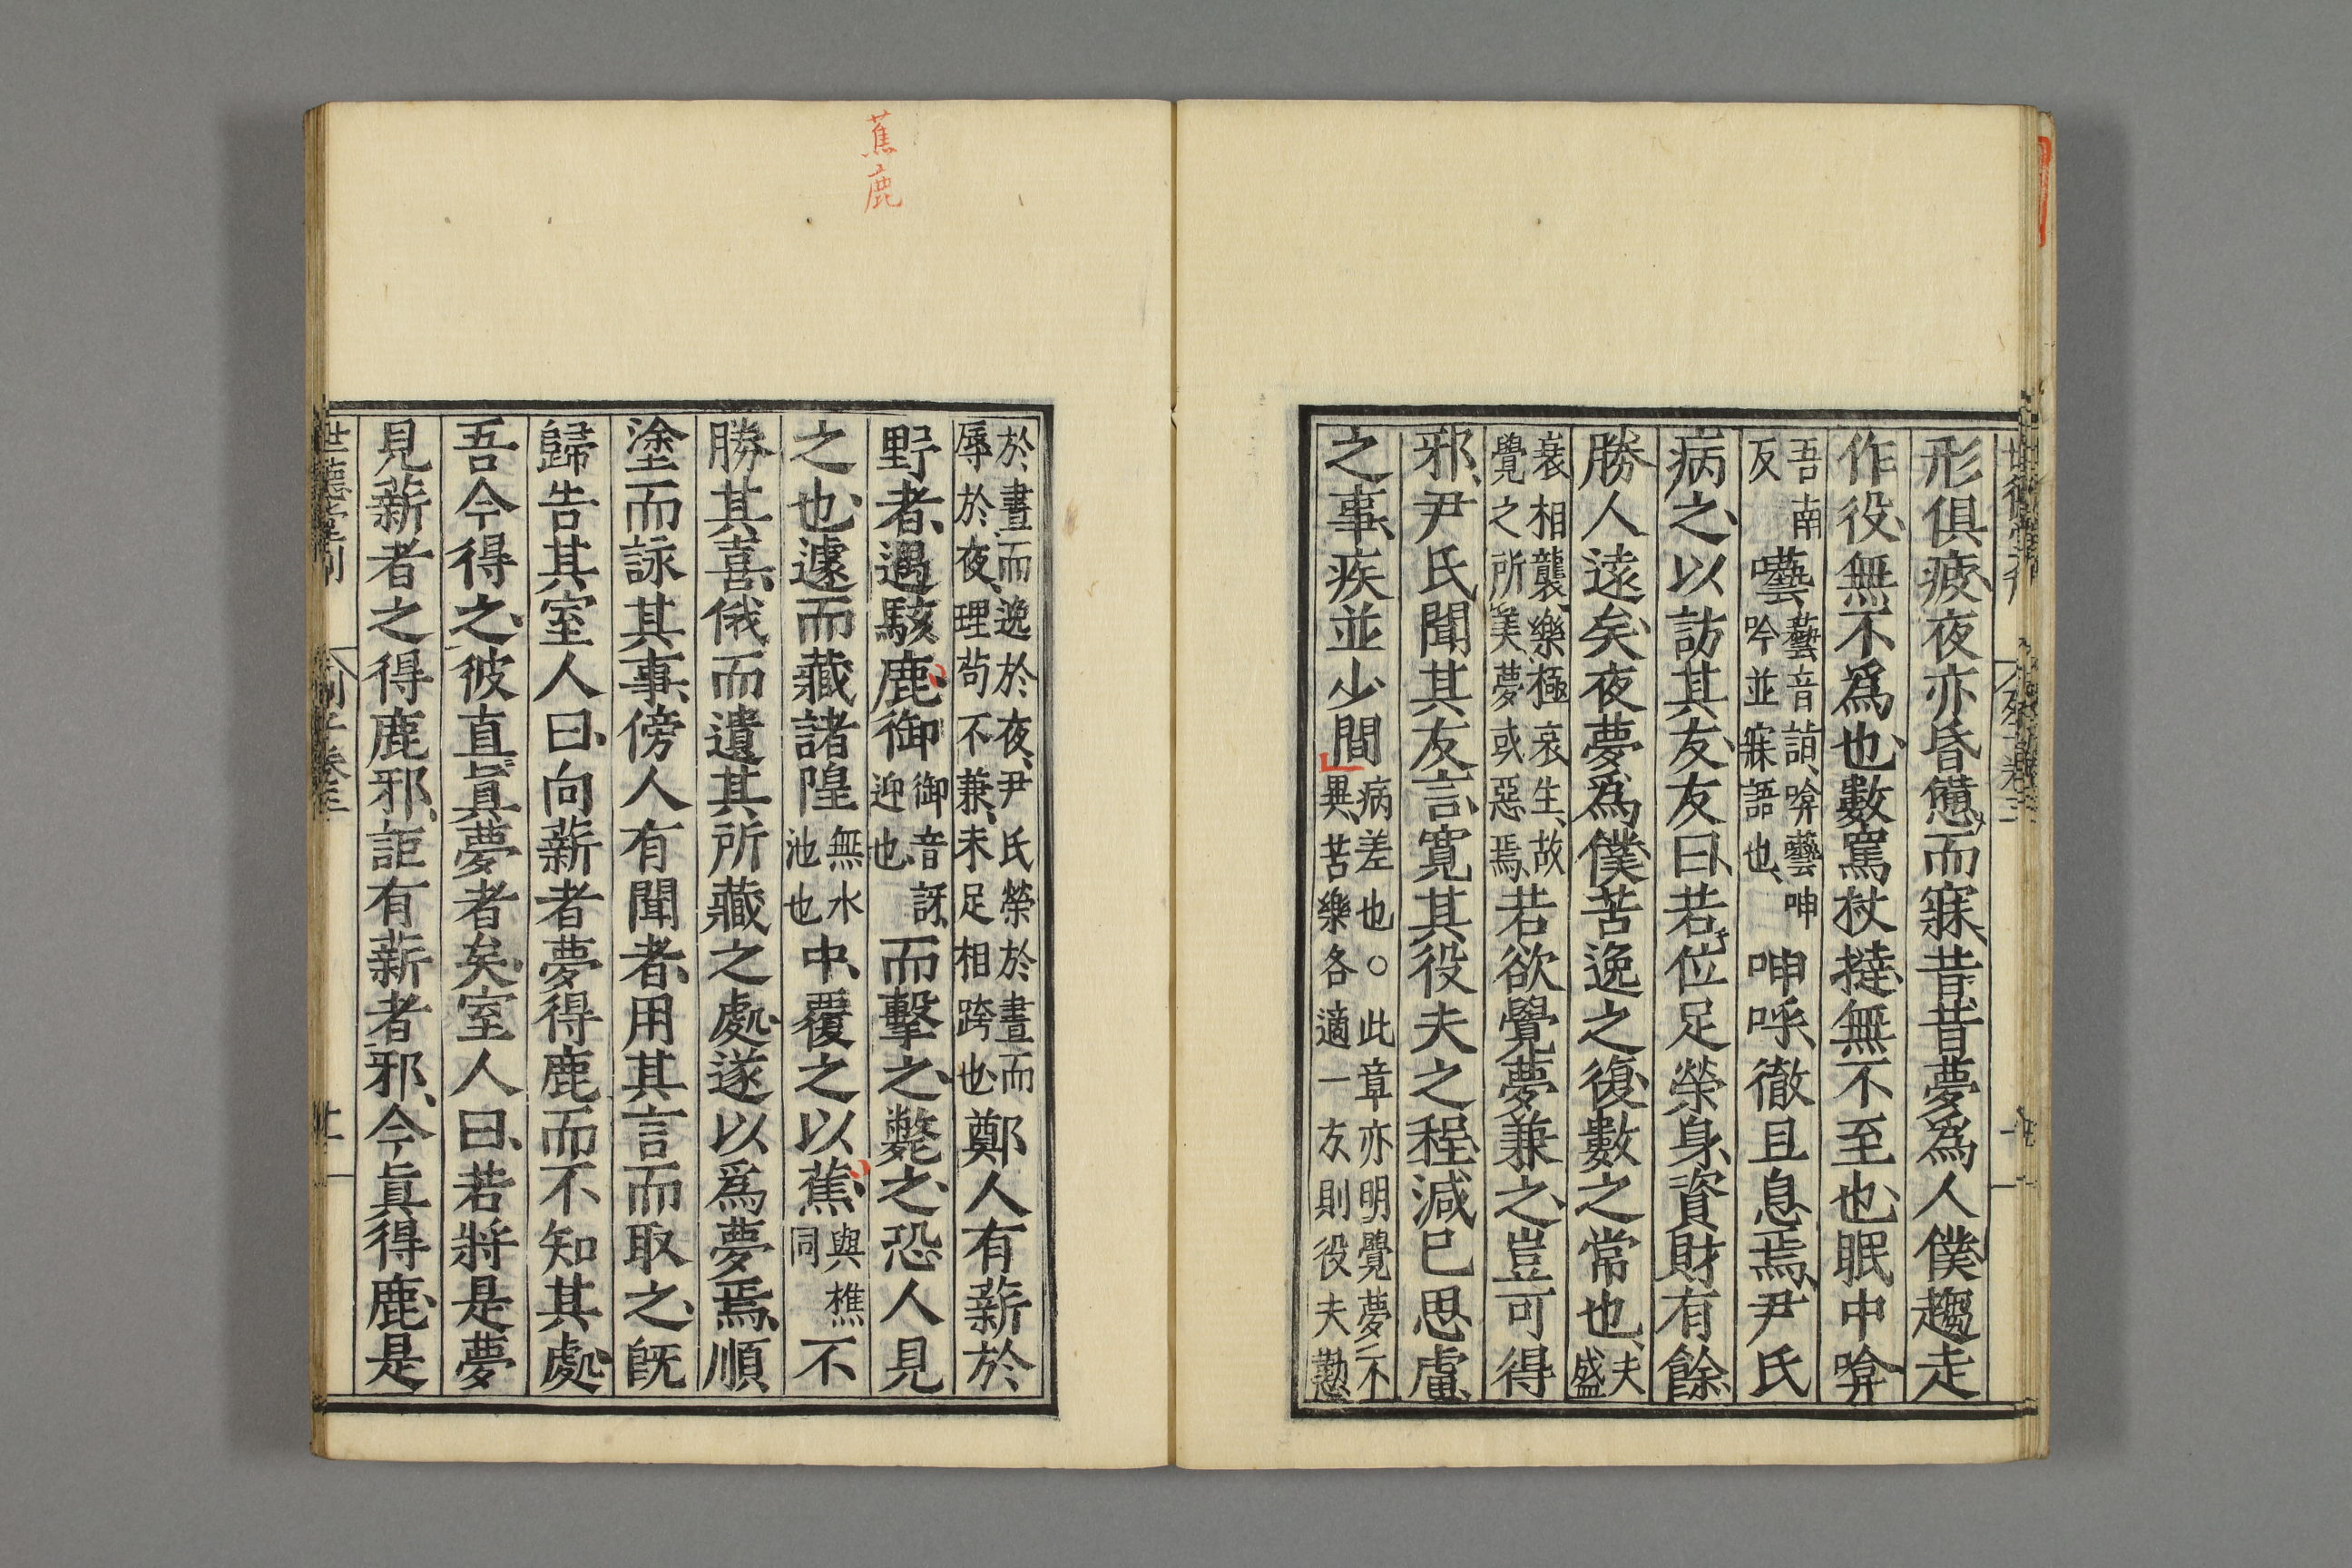 形俱疲夜亦昏憊而寐昔昔夢爲人僕趨走
作役無不爲也數罵杖撻無不至也眠中啽
吾南反囈藝音詣啽囈呻吟並寐語也呻呼徹旦息焉尹氏
病之以訪其友友曰若位足榮身資財有餘
勝人遠矣夜夢爲僕苦逸之復數之常也夫盛
衰相襲樂極哀生故覺之所美夢或惡焉若欲覺夢兼之豈可得
邪尹氏聞其友言寬其役夫之程減已思慮
之事疾並少間病差也○此章亦明覺夢不異苦樂各適一友則役夫懃
蕉鹿
於晝而逸於夜尹氏榮於晝而辱於夜理苟不兼未足相跨也鄭人有薪於
野者遇駭鹿御御音訝迎也而擊之斃之恐人見
之也遽而藏諸隍無水池也中覆之以蕉與樵同不
勝其喜俄而遺其所藏之處遂以爲夢焉順
塗而詠其事傍人有聞者用其言而取之旣
歸告其室人曰向薪者夢得鹿而不知其處
吾今得之彼直眞夢者矣室人曰若將是夢
見薪者之得鹿邪詎有薪者邪今眞得鹿是
世德堂刊
列子卷三